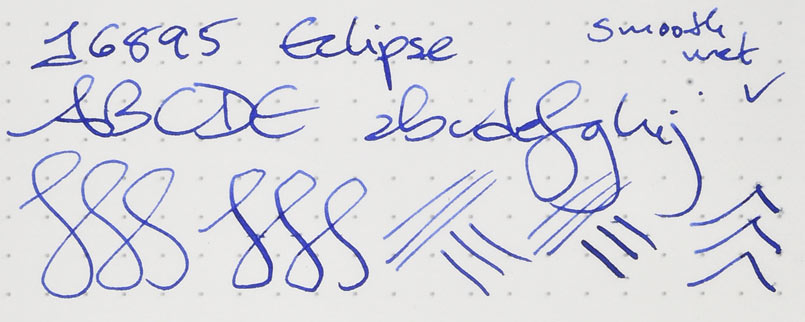 16895 Eclipse
smooth
wet ✓
ABCDE abcdefghij